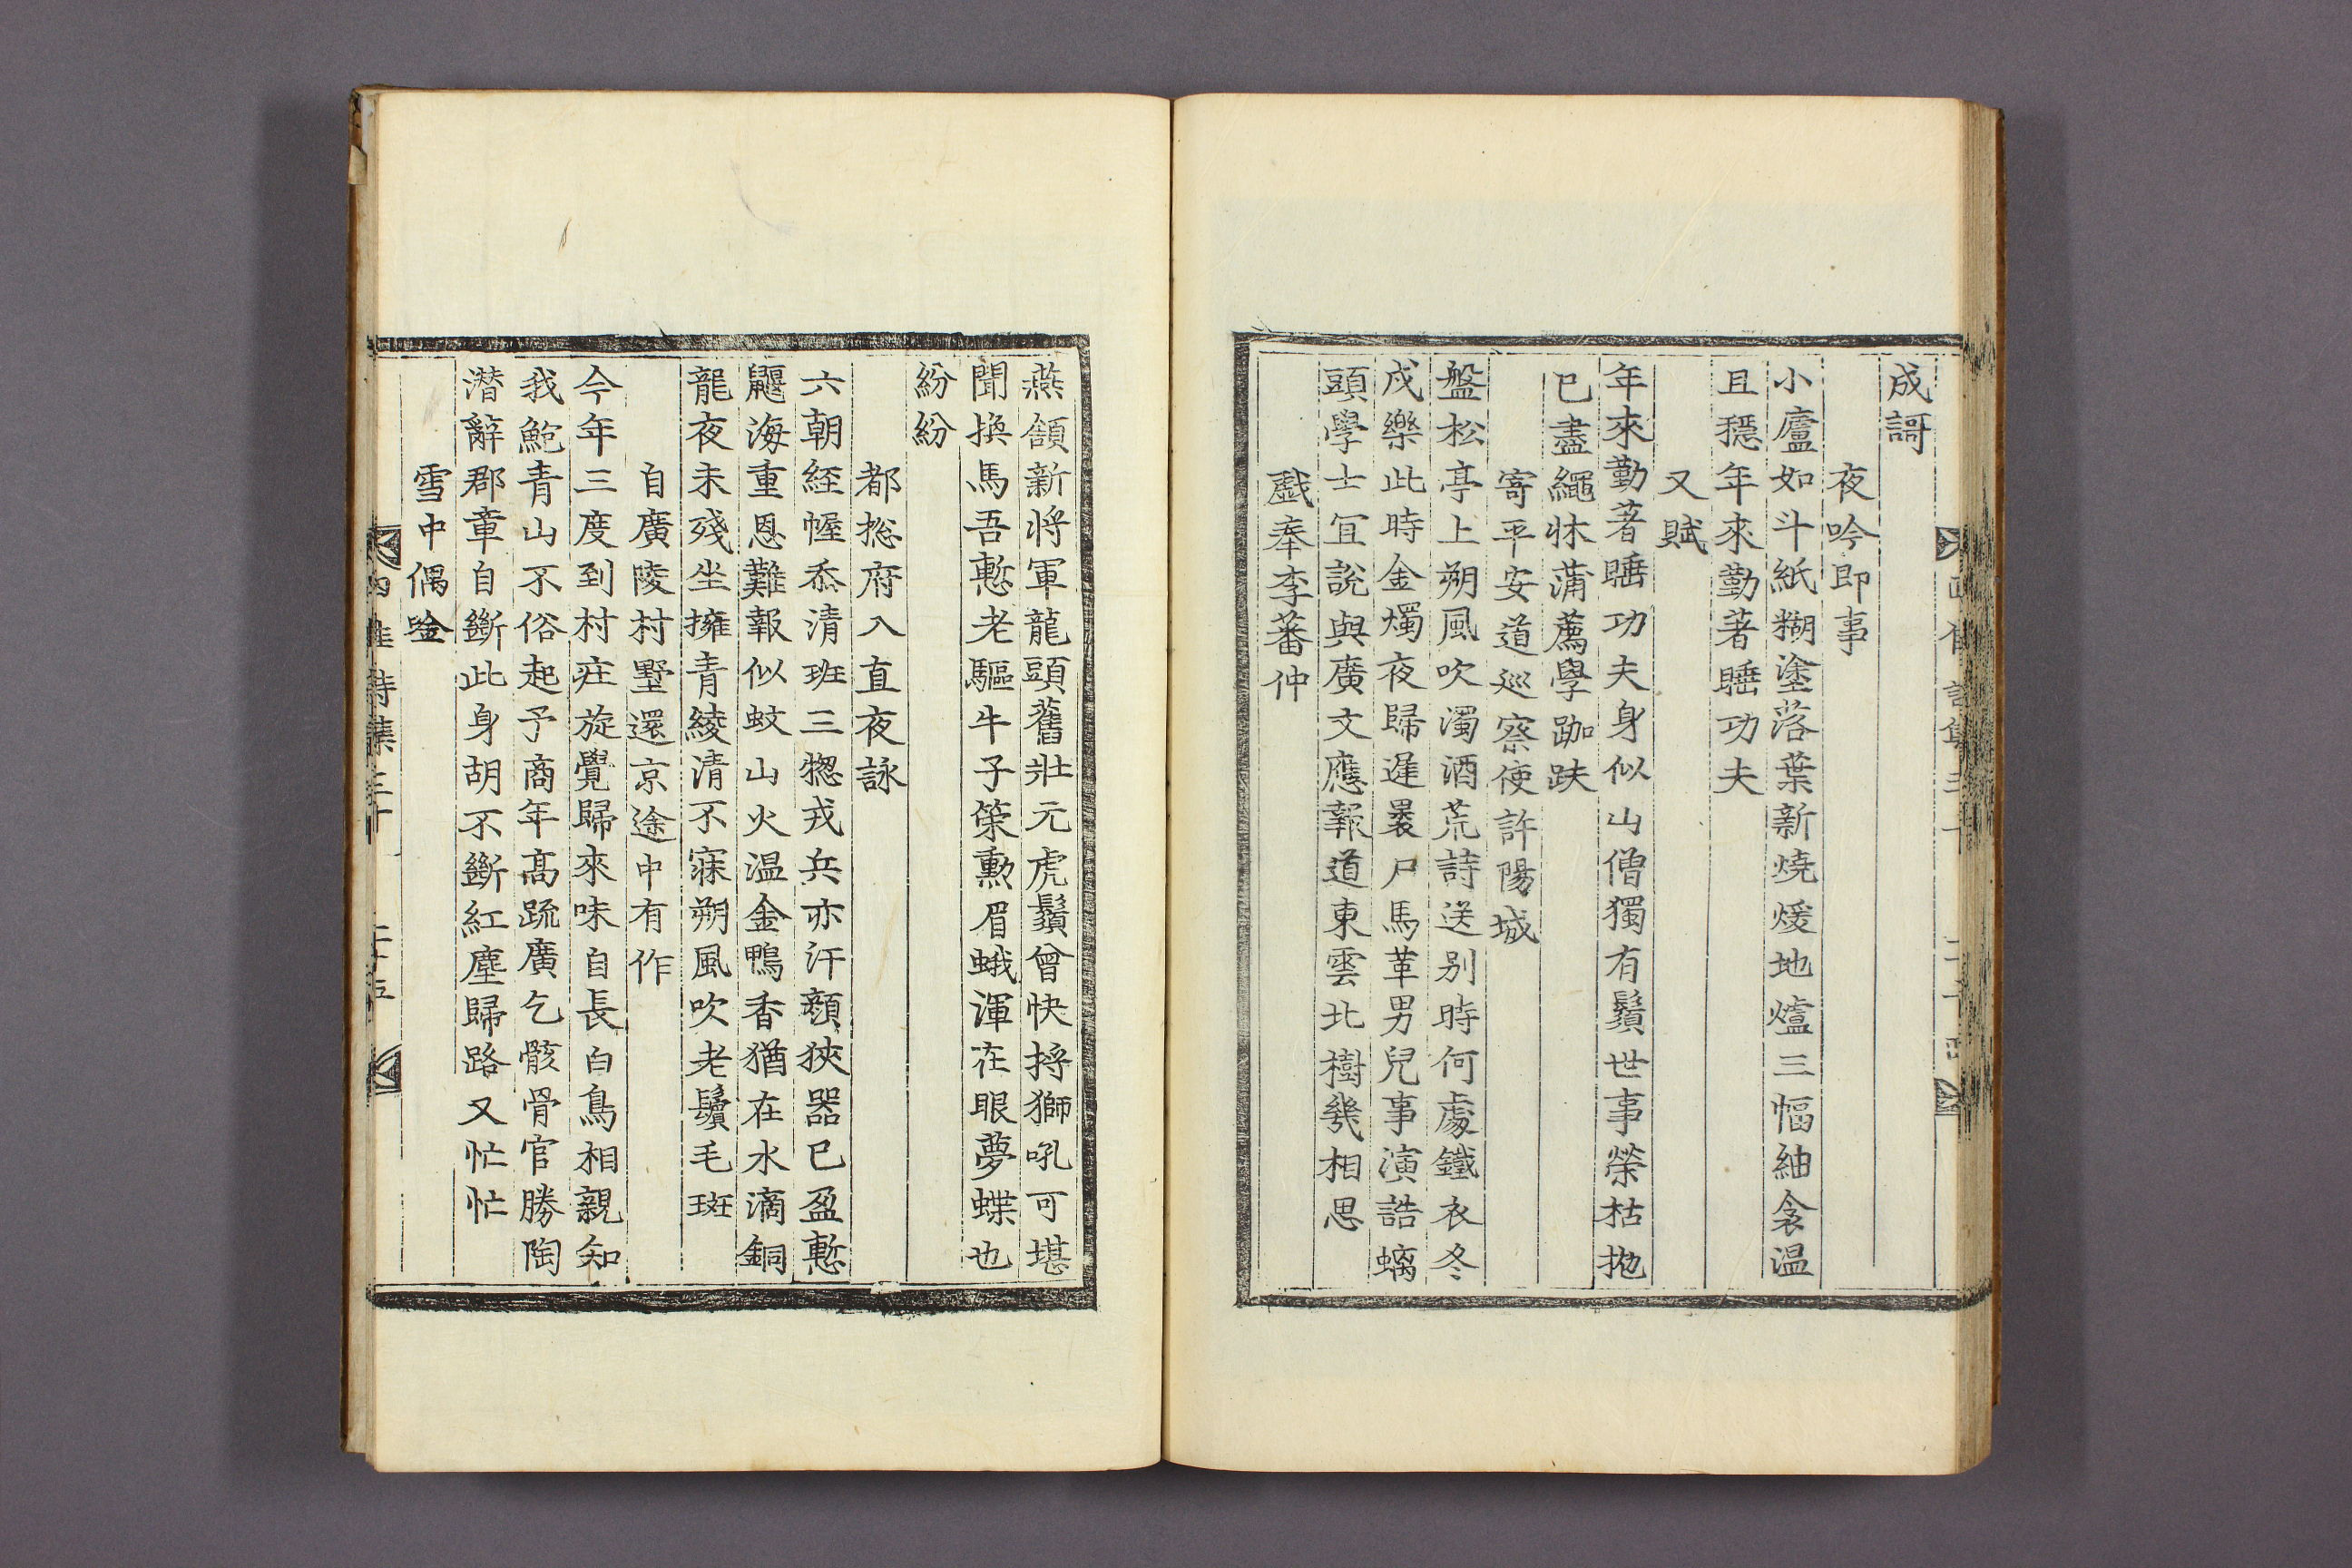 成謌
夜吟即事
小廬如斗紙糊塗落葉新燒煖地爐三幅紬衾温
且穩年來勤著睡功夫
又賦
年來勤著睡功夫身似山僧獨有鬚世事榮枯抛
已盡繩牀蒲薦學跏趺
寄平安道巡察使許陽城
盤松亭上朔風吹濁酒荒詩送別時何處鐵衣冬
戍樂此時金燭夜歸遲裹尸馬革男兒事演誥螭
頭學士宜說與廣文應報道東雲北樹幾相思
戱奉李蕃仲
燕頷新將軍龍頭舊壯元虎鬚曾快捋獅吼可堪
聞換馬吾慙老驅牛子策勲眉蛾渾在眼夢蝶也
紛紛
都摠府入直夜詠
六朝經幄忝清班三惣戎兵亦汗顔狹器已盈慙
鼴海重恩難報似蚊山火温金鴨香猶在水滴銅
龍夜未殘坐擁青綾清不寐朔風吹老鬢毛斑
自廣陵村墅還京途中有作
今年三度到村庄旋覺歸來味自長白鳥相親知
我鮑青山不俗起予商年高踈廣乞骸骨官勝陶
潛辭郡章自斷此身胡不斷紅塵歸路又忙忙
雪中偶唫
四佳詩集三十 二十五